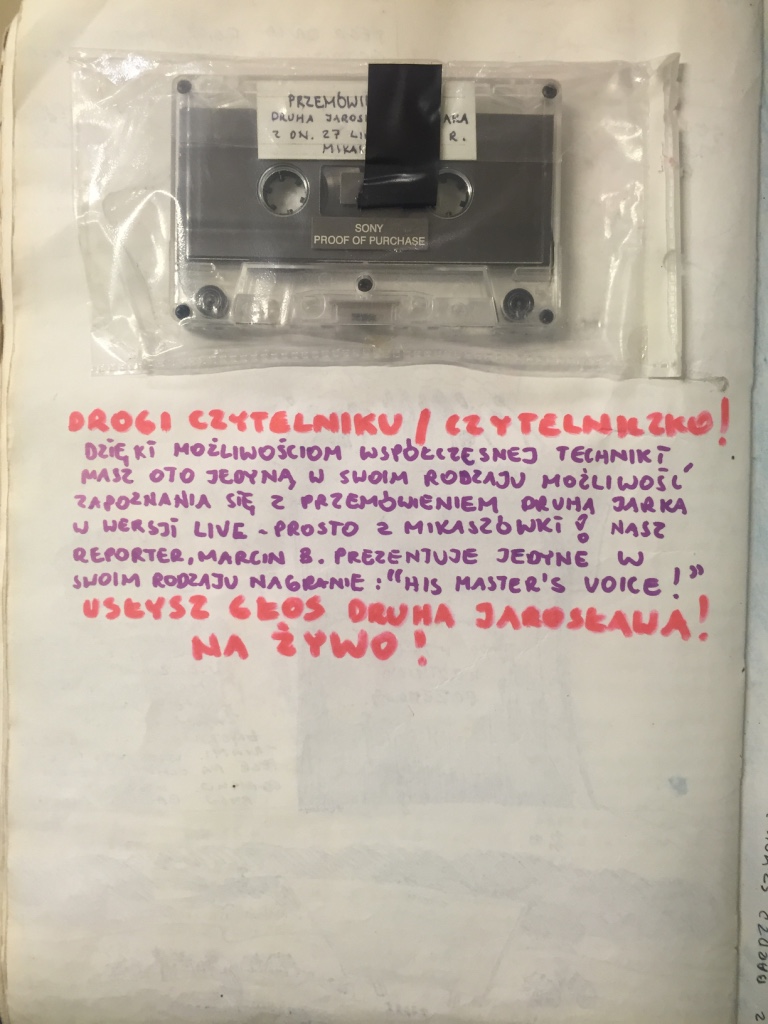 PRZEMÓWI
DRUHA JAROS
Z DN. 27 R.
SONY
PROOF OF PURCHASE
DROGI CZYTELNIKU / CZYTELNICZKO!
DZIĘKI MOŻLIWOŚCIOM WSPÓŁCZĘSNEJ TECHNIKI,
MASZ OTO JEDYNĄ W SWOIM RODZAJU MOŻLIWOŚĆ
ZAPOZNANIA SIĘ Z PRZEMÓWIENIEM DRUHA JARKA
W WERSJI LIVE - PROSTO Z MIKASZÓWKI! NASZ
REPORTER, MARCIN B. PREZENTUJE JEDYNE W
SWOIM RODZAJU NAGRANIE: "HIS MASTER'S VOICE!"
USŁYSZ GŁOS DRUHA JAROSŁAWA!
NA ŻYWO!
Z BARDZO